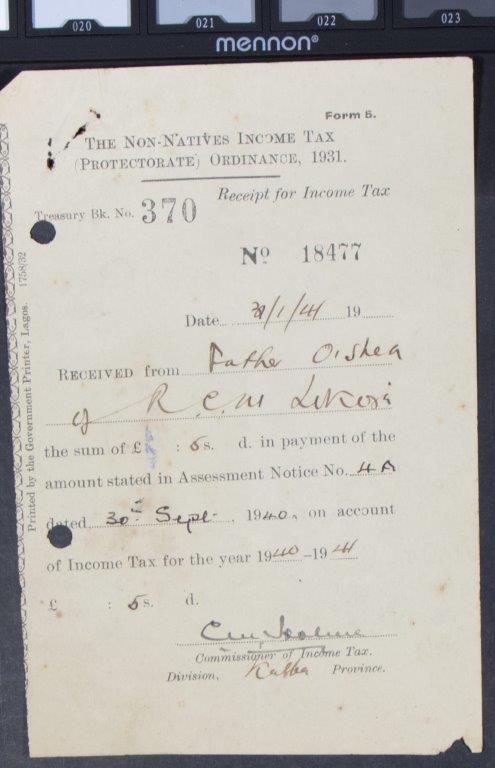 020 021 022 023
mennon®
Form 5.
THE NON-NATIVES INCOME TAX
(PROTECTORATE) ORDINANCE, 1931.
Receipt for Income Tax
Treasury Bk. No. 370
No 18477
Date 31/1/41 19
RECEIVED from Father O'Shea
of R.C.M Lokoja
the sum of £ : 5s. d. in payment of the
amount stated in Assessment Notice No. 4A
dated 30th Sept. , 1940, on account
of Income Tax for the year 1940-1941
£ : 5s. d.
Commissioner of Income Tax.
Division, Kabba Province.
Printed by the Government Printer, Lagos. 1758/32